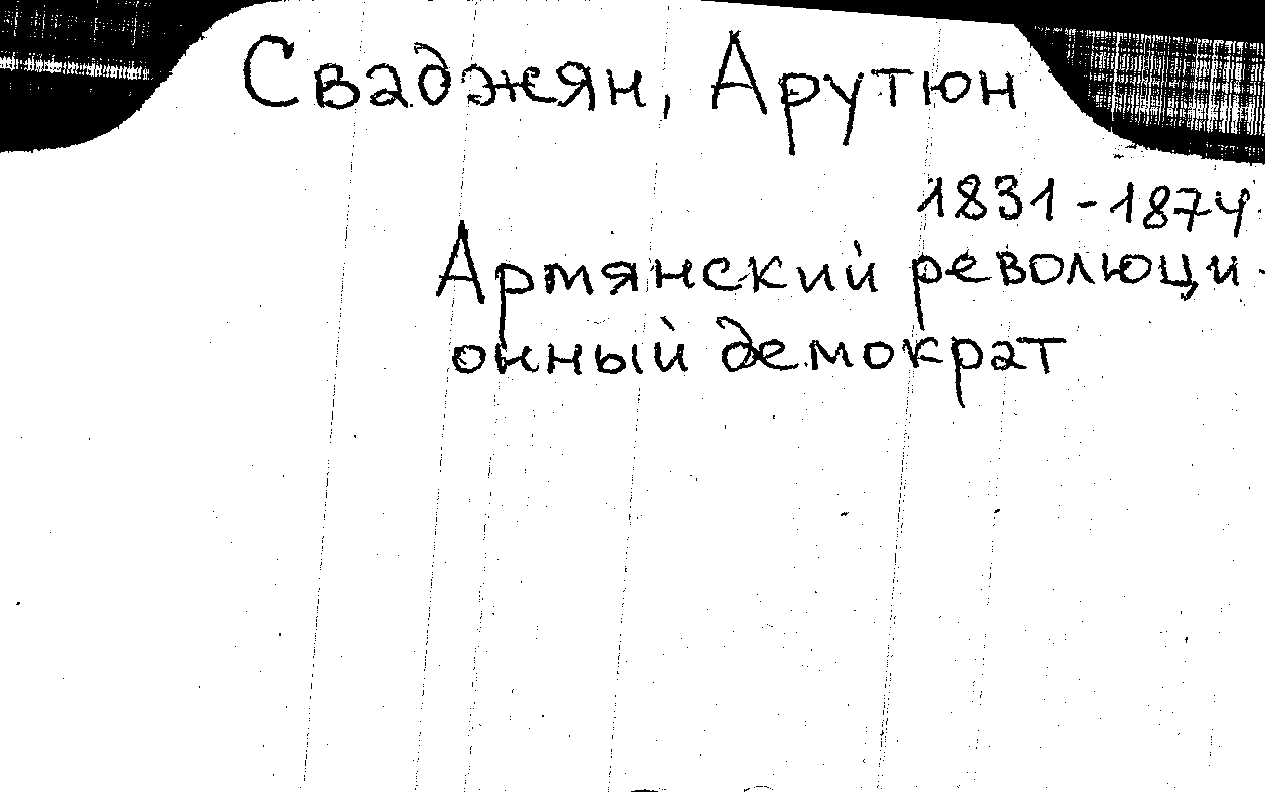 Сваджян, Арутюн
1831-1874
Армянский революци-
онный демократ